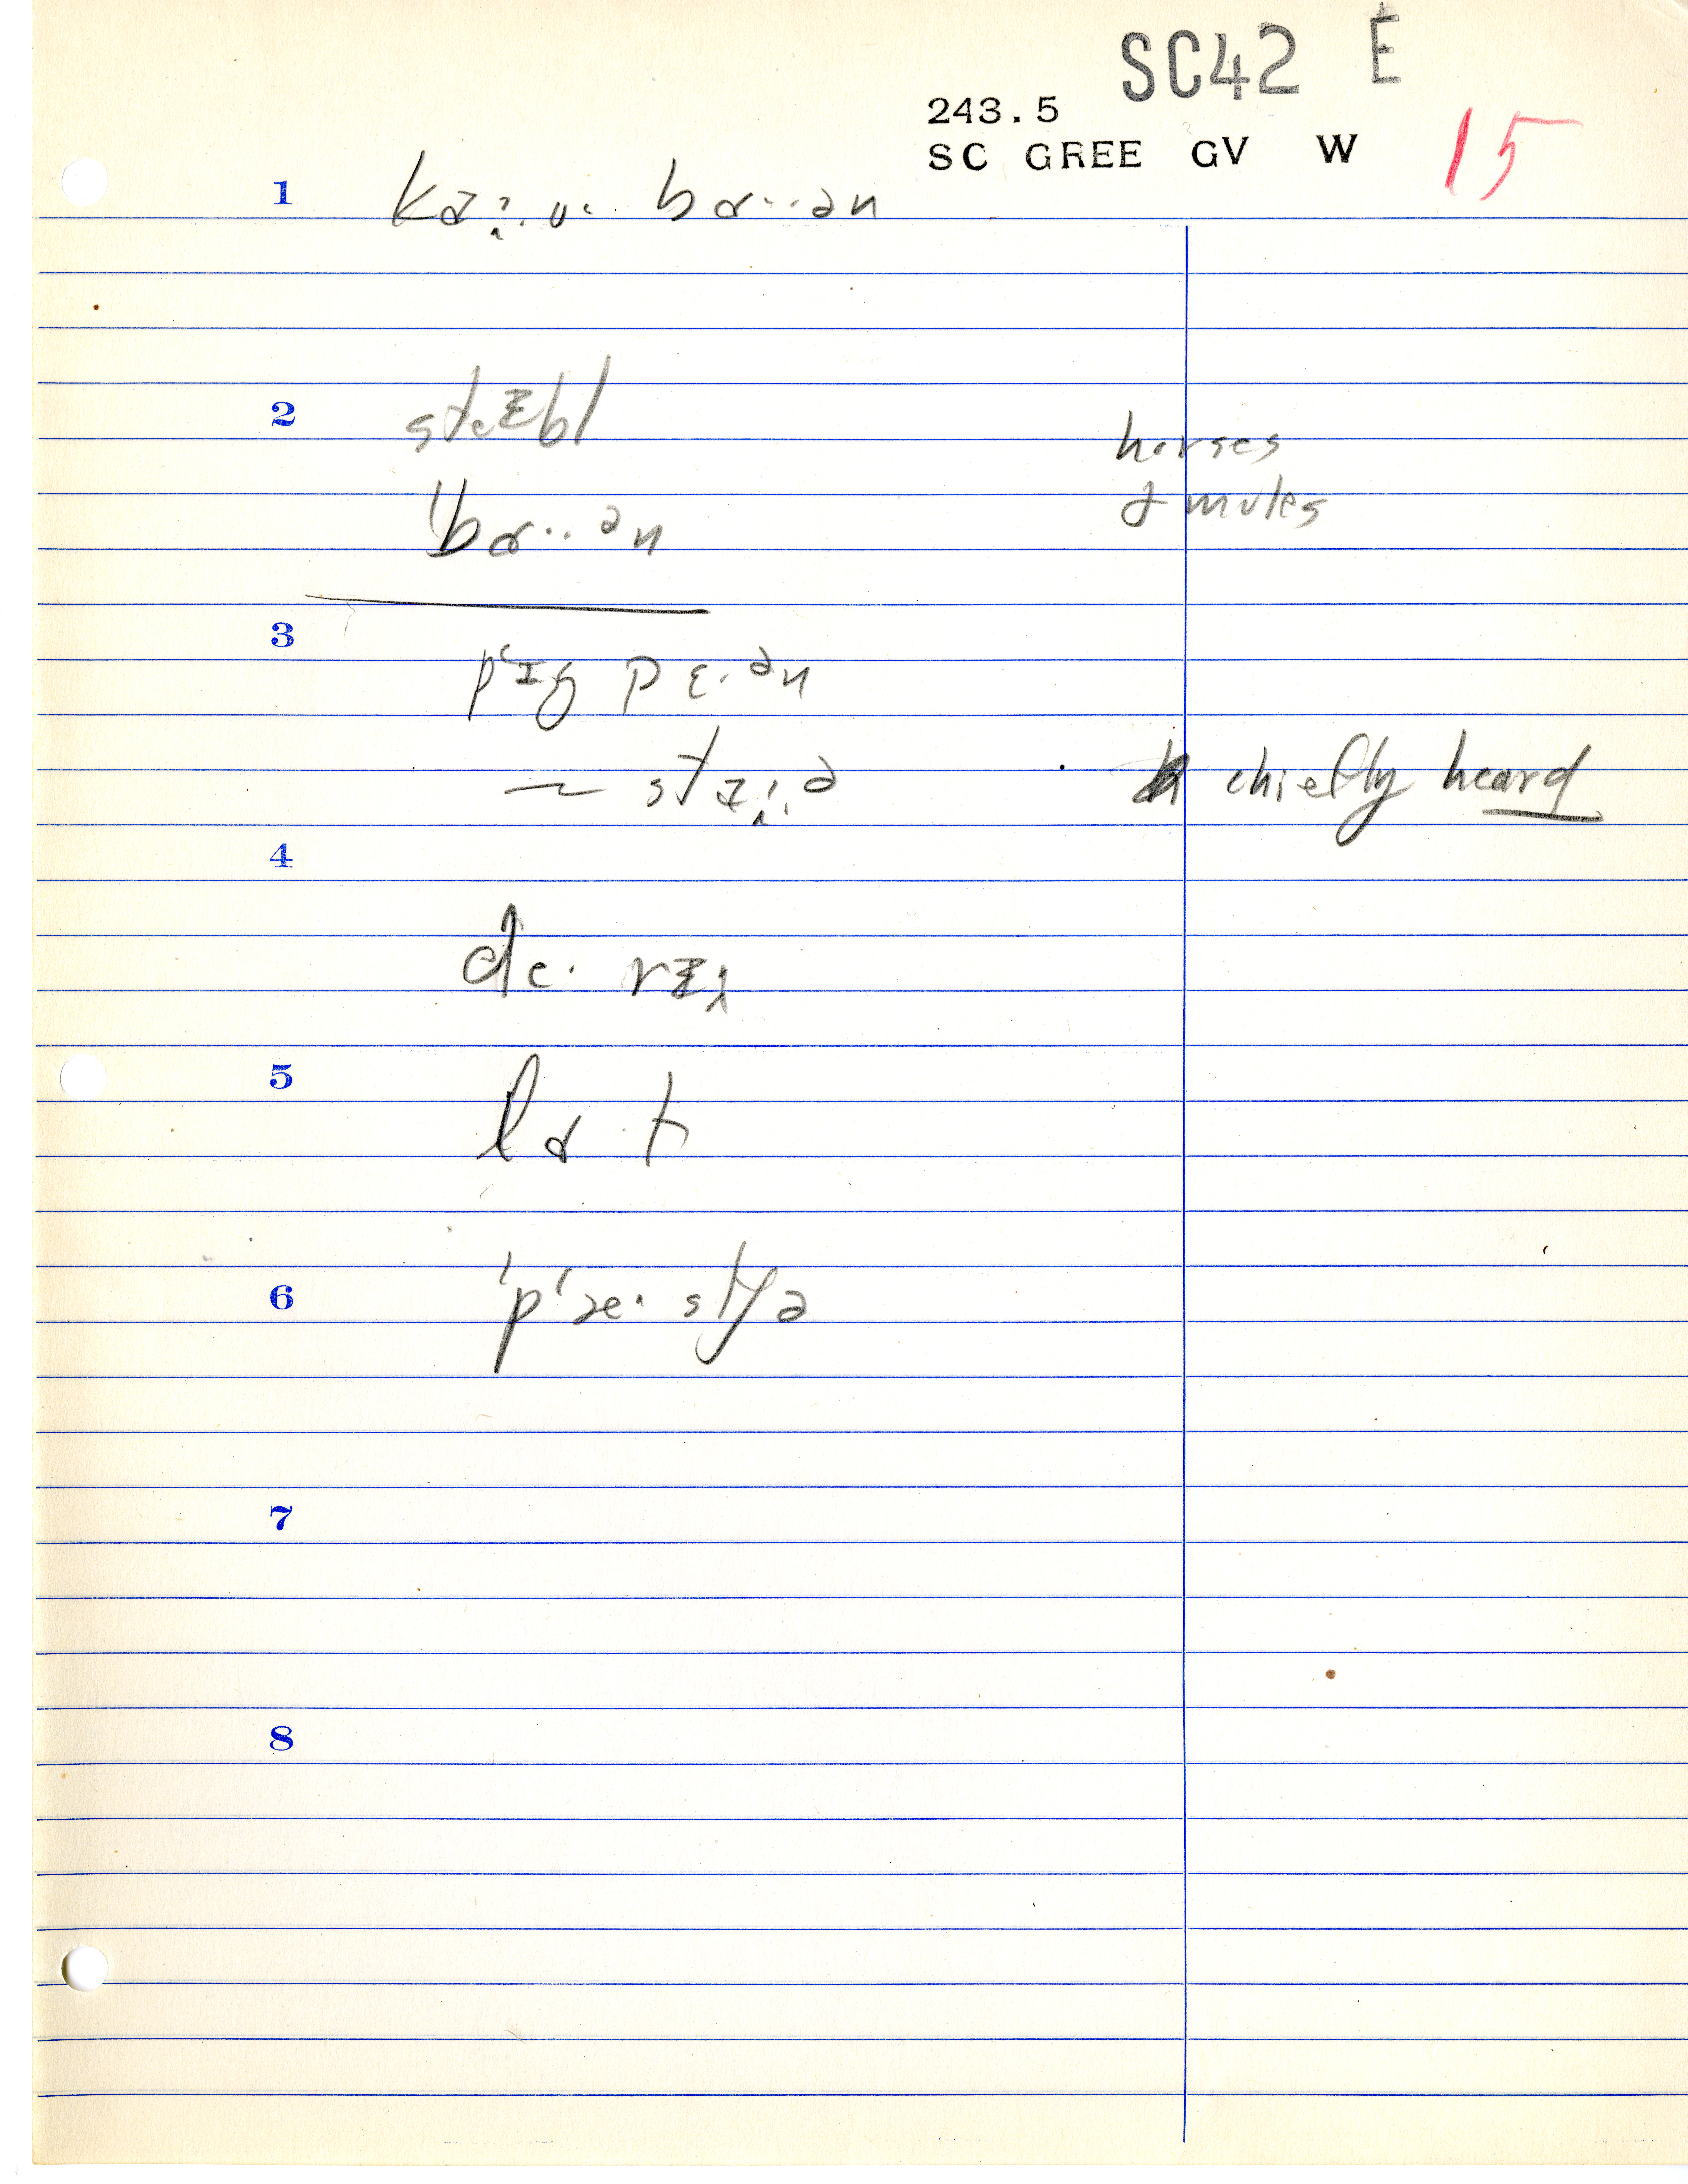 SC42 E
243.5
SC GREE GV W 15
1 ka·u· bɑ··ən
2 steɪbl horses
bɑ··ən & mules
3 p‘ɪg pɛ·ən
~ stɪ·ə chiefly heard
4 de· rɪ
5 lɑ t
6 'p‘æ· stʃə
7
8